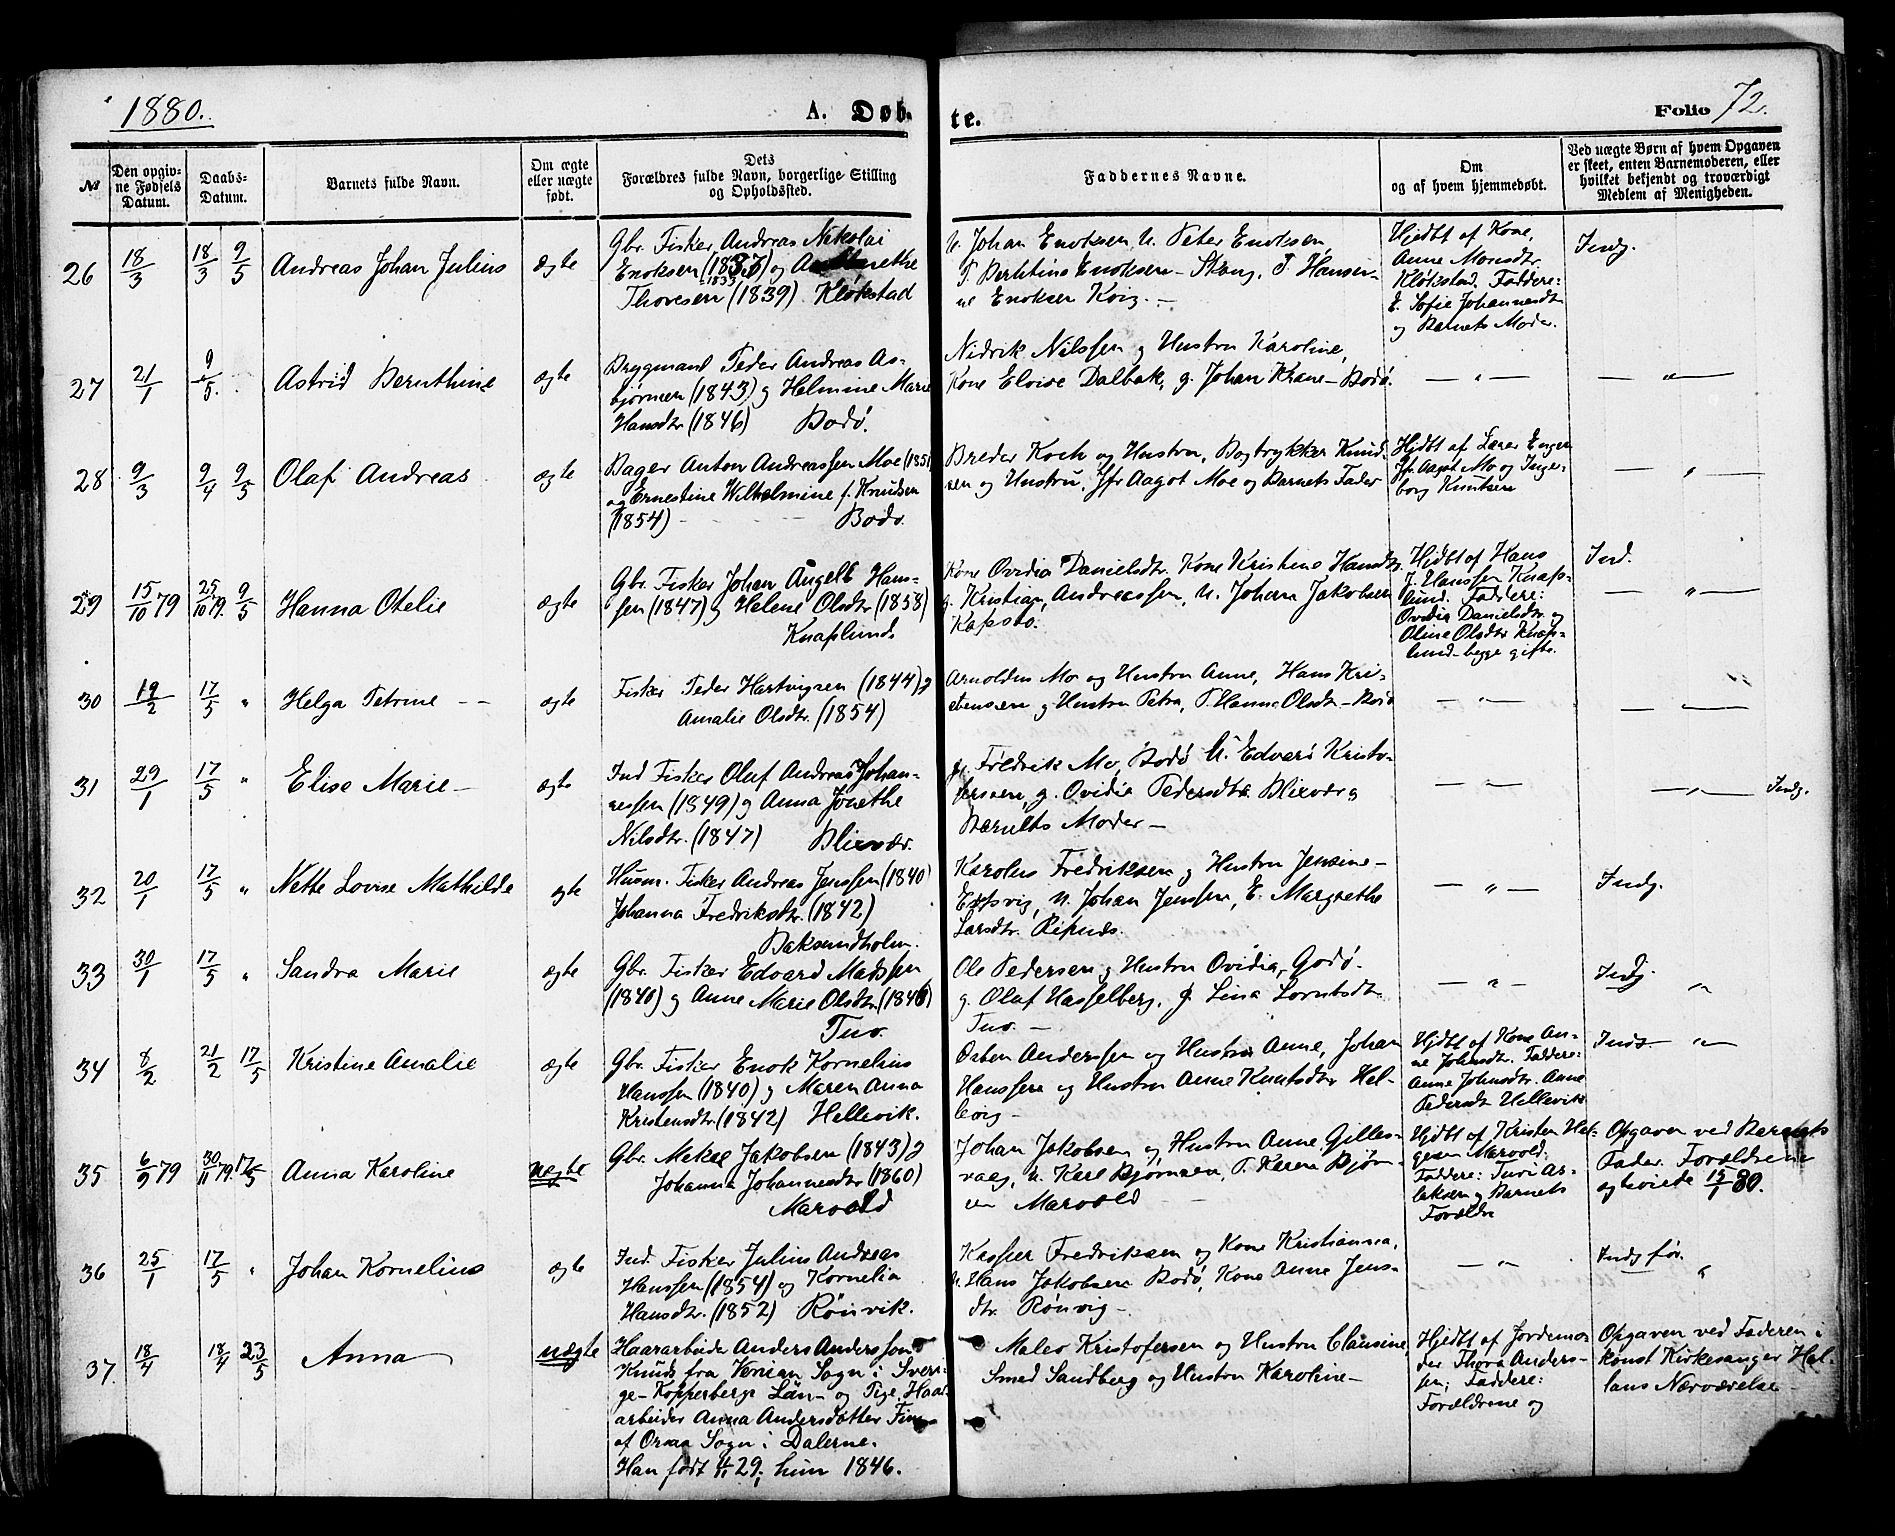 1880.
A. Døb-
te.
Folio 72.
№
Den opgiv-
ne Fødsels
Datum.
Daabs-
Datum.
Barnets fulde Navn.
Om ægte
eller uægte
født.
Dets
Forældres fulde Navn, borgerlige Stilling
og Opholdssted.
Faddernes Navne.
Om
og af hvem hjemmedøbt.
Ved uægte Børn af hvem Opgaven
er skeet, enten Barnemoderen, eller
hvilket bekjendt og troværdigt
Medlem af Menigheden.
26 18/3 18/3 9/5 Andreas Johan Julius ægte
Gbr. Fisker Andreas Nikolai
Enoksen (1833) og
Thoresen (1839) Kløkstad
U. Johan Enoksen, U. Peter Enoksen,
P. Berntine Enoksen - Skaug, P. Hansi-
ne Enoksen Kvig. -
Hjdbt af Kone,
Anne Monsdtr
Kløkstad. Faddere:
E. Sofie Johannesdtr
og Barnets Moder.
Indg.
27 21/1 9/5. Astrid Bernthine ægte
Brygmand Peder Andreas As-
bjørnsen (1843) og Helmine Marie
Hansdtr (1846) Bodø.
Nidrik Nilssen og Hustru Karoline,
Kone Elvise Dalbak, g. Johan Krane - Bodø.
— " — — " —
28 9/3 9/4 9/5 Olaf Andreas ægte
Bager Anton Andreassen Moe (1851
og Ernestine Wilhelmine f. Knudsen
(1854) - - - Bodø.
Breder Koch og Hustru, Bogtrykker Knud-
sen og Hustru, Jfr Aagot Moe og Barnets Fader
Hjdbt af Lærer Engen
Jfr Aagot Mo og Inge-
borg Knutsen
— " —
29 15/10 79 25/10 79. 9/5 Hanna Otelie ægte
Gbr. Fisker Johan Angell Hans-
sen (1847) og Helene Olsdtr (1858)
Knaplund.
Kone Ovidia Danielsdtr. Kone Kristine Hansdtr.
g. Kristian Andreassen, U. Johan Jakobsen
Hjdbt af Hans
J. Hanssen Knap-
lund. Faddere:
Ovidia Danielsdtr og
Oline Olsdtr Knap-
lund - begge gifte.
Ind.
— " —
30 19/2 17/5 " Helga Petrine - - ægte
Fisker Peder Hartvigsen (1844) og
Amalie Olsdtr. (1854)
Arnoldus Mo og Hustru Anne, Hans Kri-
stensen og Hustru Petra, P. Hanna Olsdtr - Bodø
— " — — " —
31 29/1 17/5 " Elise Marie - ægte
Ind Fisker Oluf Andreas Johan-
nessen (1849) og Anna Jonethe
Nilsdtr. (1847) Blixvær.
g. Fredrik Mo, Bodø U. Edvard Kristo-
fersen, g. Ovidie Pedersdtr Blixvær og
Barnets Moder -
— " — — " — Indg.
32 20/1 17/5 " Nette Lovise Mathilde ægte
Husm. Fisker Andreas Jenssen (1840)
Johanna Fredriksdtr. (1842)
Baksundholm.
Karolus Fredriksen og Hustru Jensine -
U. Johan Jenssen, E. Margrethe
Larsdtr. Ripnæs.
— " — Indg.
33 30/1 17/5 " Sandra Marie ægte
Gbr. Fisker Edvard Madssen
(1840) og Anne Marie Olsdtr. (1846)
Tuv.
Ole Pedersen og Hustru Ovidia, Godø.
g. Oluf Hasselberg, P. Lina Lorntsdtr
Tuv. -
— " — Indg. "
34 8/2 21/2 17/5 Kristine Amalie ægte
Gbr. Fisker Enok Kornelius
Hanssen (1840) og Maren Anna
Kristensdtr. (1842) Hellevik.
Osben Anderssen og Hustru Anne, Johan
Hanssen og Hustru Anne Knutsdtr Hel-
levig -
Hjdbt af Kone An-
ne Johnsdtr. Faddere:
Anne Johnsdtr. Anne
Pedersdtr Hellevik
Indg - " -
35 6/9 79 30/11 79. 17/5 Anna Karoline uægte
Gbr. Mekal Jakobsen (1843) og
Johanna Johannesdtr (1860)
Marvold
Johan Jakobsen og Hustru Anne Gilles-
vaag, U. Karl Bjørnsen, P. Karen Bjørn-
sen Marvold -
Hjdbt af Kristen Hel-
gesen Marvold:
Faddere: Turi As-
laksen og Barnets
Forældre
Opgaven ved Barnets
Fader. Forældrene
egteviede 15/1 80.
36 25/1 17/5 " Johan Kornelius ægte
Ind. Fisker Julius Andreas
Hanssen (1854) og Kornelia
Hansdtr. (1852) Rönvik.
Kasper Fredriksen og Kone Kristianna,
U. Hans Jakobsen Bodø, Kone Anne Jens-
dtr. Rönvig -
— " — Indg før. "
37. 18/4 18/4 23/5 Anna uægte
Haararbeider Anders Andersson
Knuds fra Venjan Sogn i Sverri-
ge - Kopperbergs Län - og Pige, Haar-
arbeider Anna Andersdotter Finn-
af Orsaa Sogn i Dalerne.
Han født 29, hun 1846.
Maler Kristofersen og Hustru Clausine,
Smed Sandberg og Hustru Karoline -
Hjdbt af Jordemo-
der Thora Anders-
sen; Faddere:
Forældrene og
Opgaven ved Faderen i
konst Kirkesanger Hal-
lans Nærværelse -